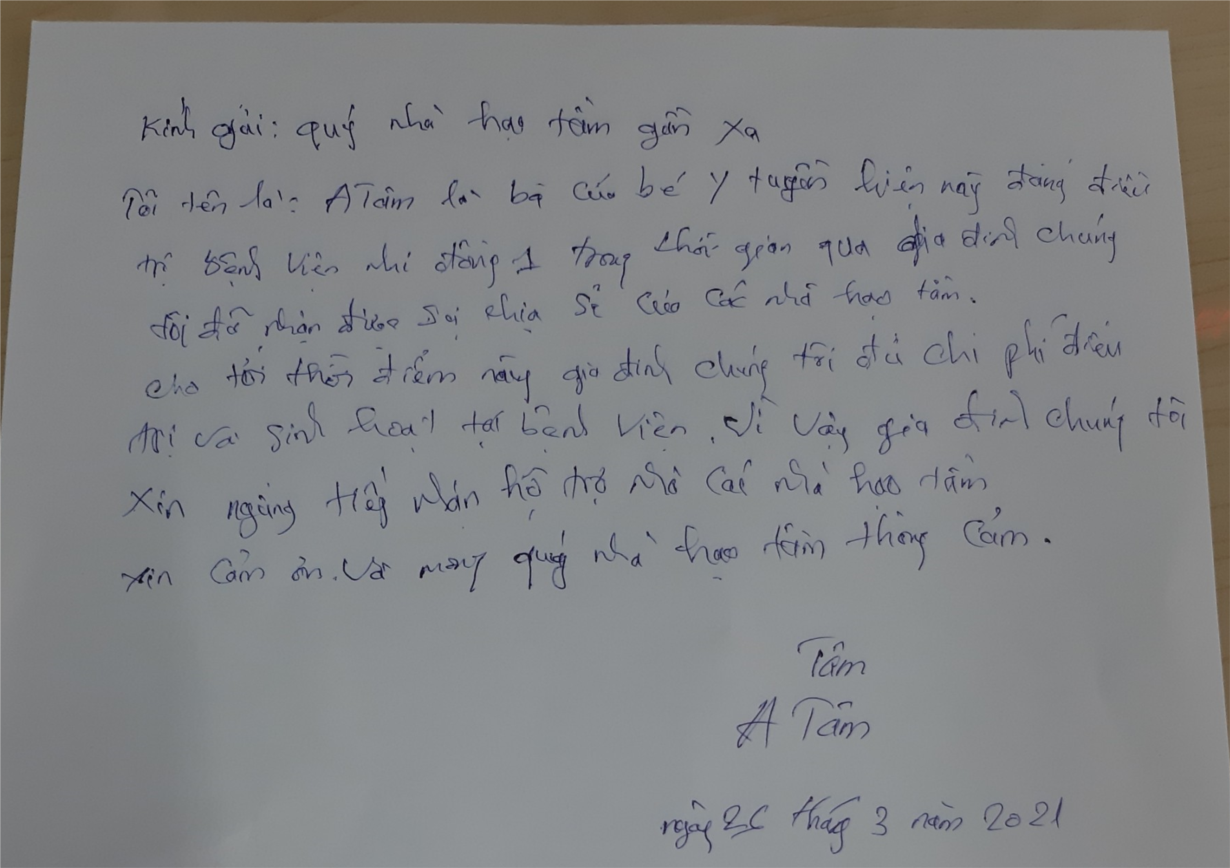 Kính gửi: quý nhà hạo tâm gần xa
Tôi tên là: A Tâm là bố của bé Y tuyền hiện nay đang điều
trị bệnh viện nhi đồng 1 trong thời gian qua gia đình chúng
tôi đã nhận được sự chia sẻ của các nhà hạo tâm.
cho tới thời điểm này gia đình chúng tôi đủ chi phí điều
trị và sinh hoạt tại bệnh viện. Vì vậy gia đình chúng tôi
xin ngừng tiếp nhận hỗ trợ nhà các nhà hạo tâm
xin cảm ơn. và mong quý nhà hạo tâm thông cảm.
Tâm
A Tâm
ngày 26 tháng 3 năm 2021